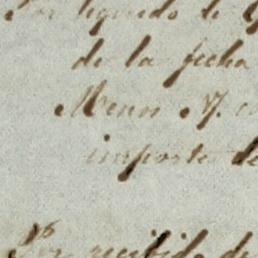 Por liquido de
de la fecha
Menos
importe de
Por recibido de